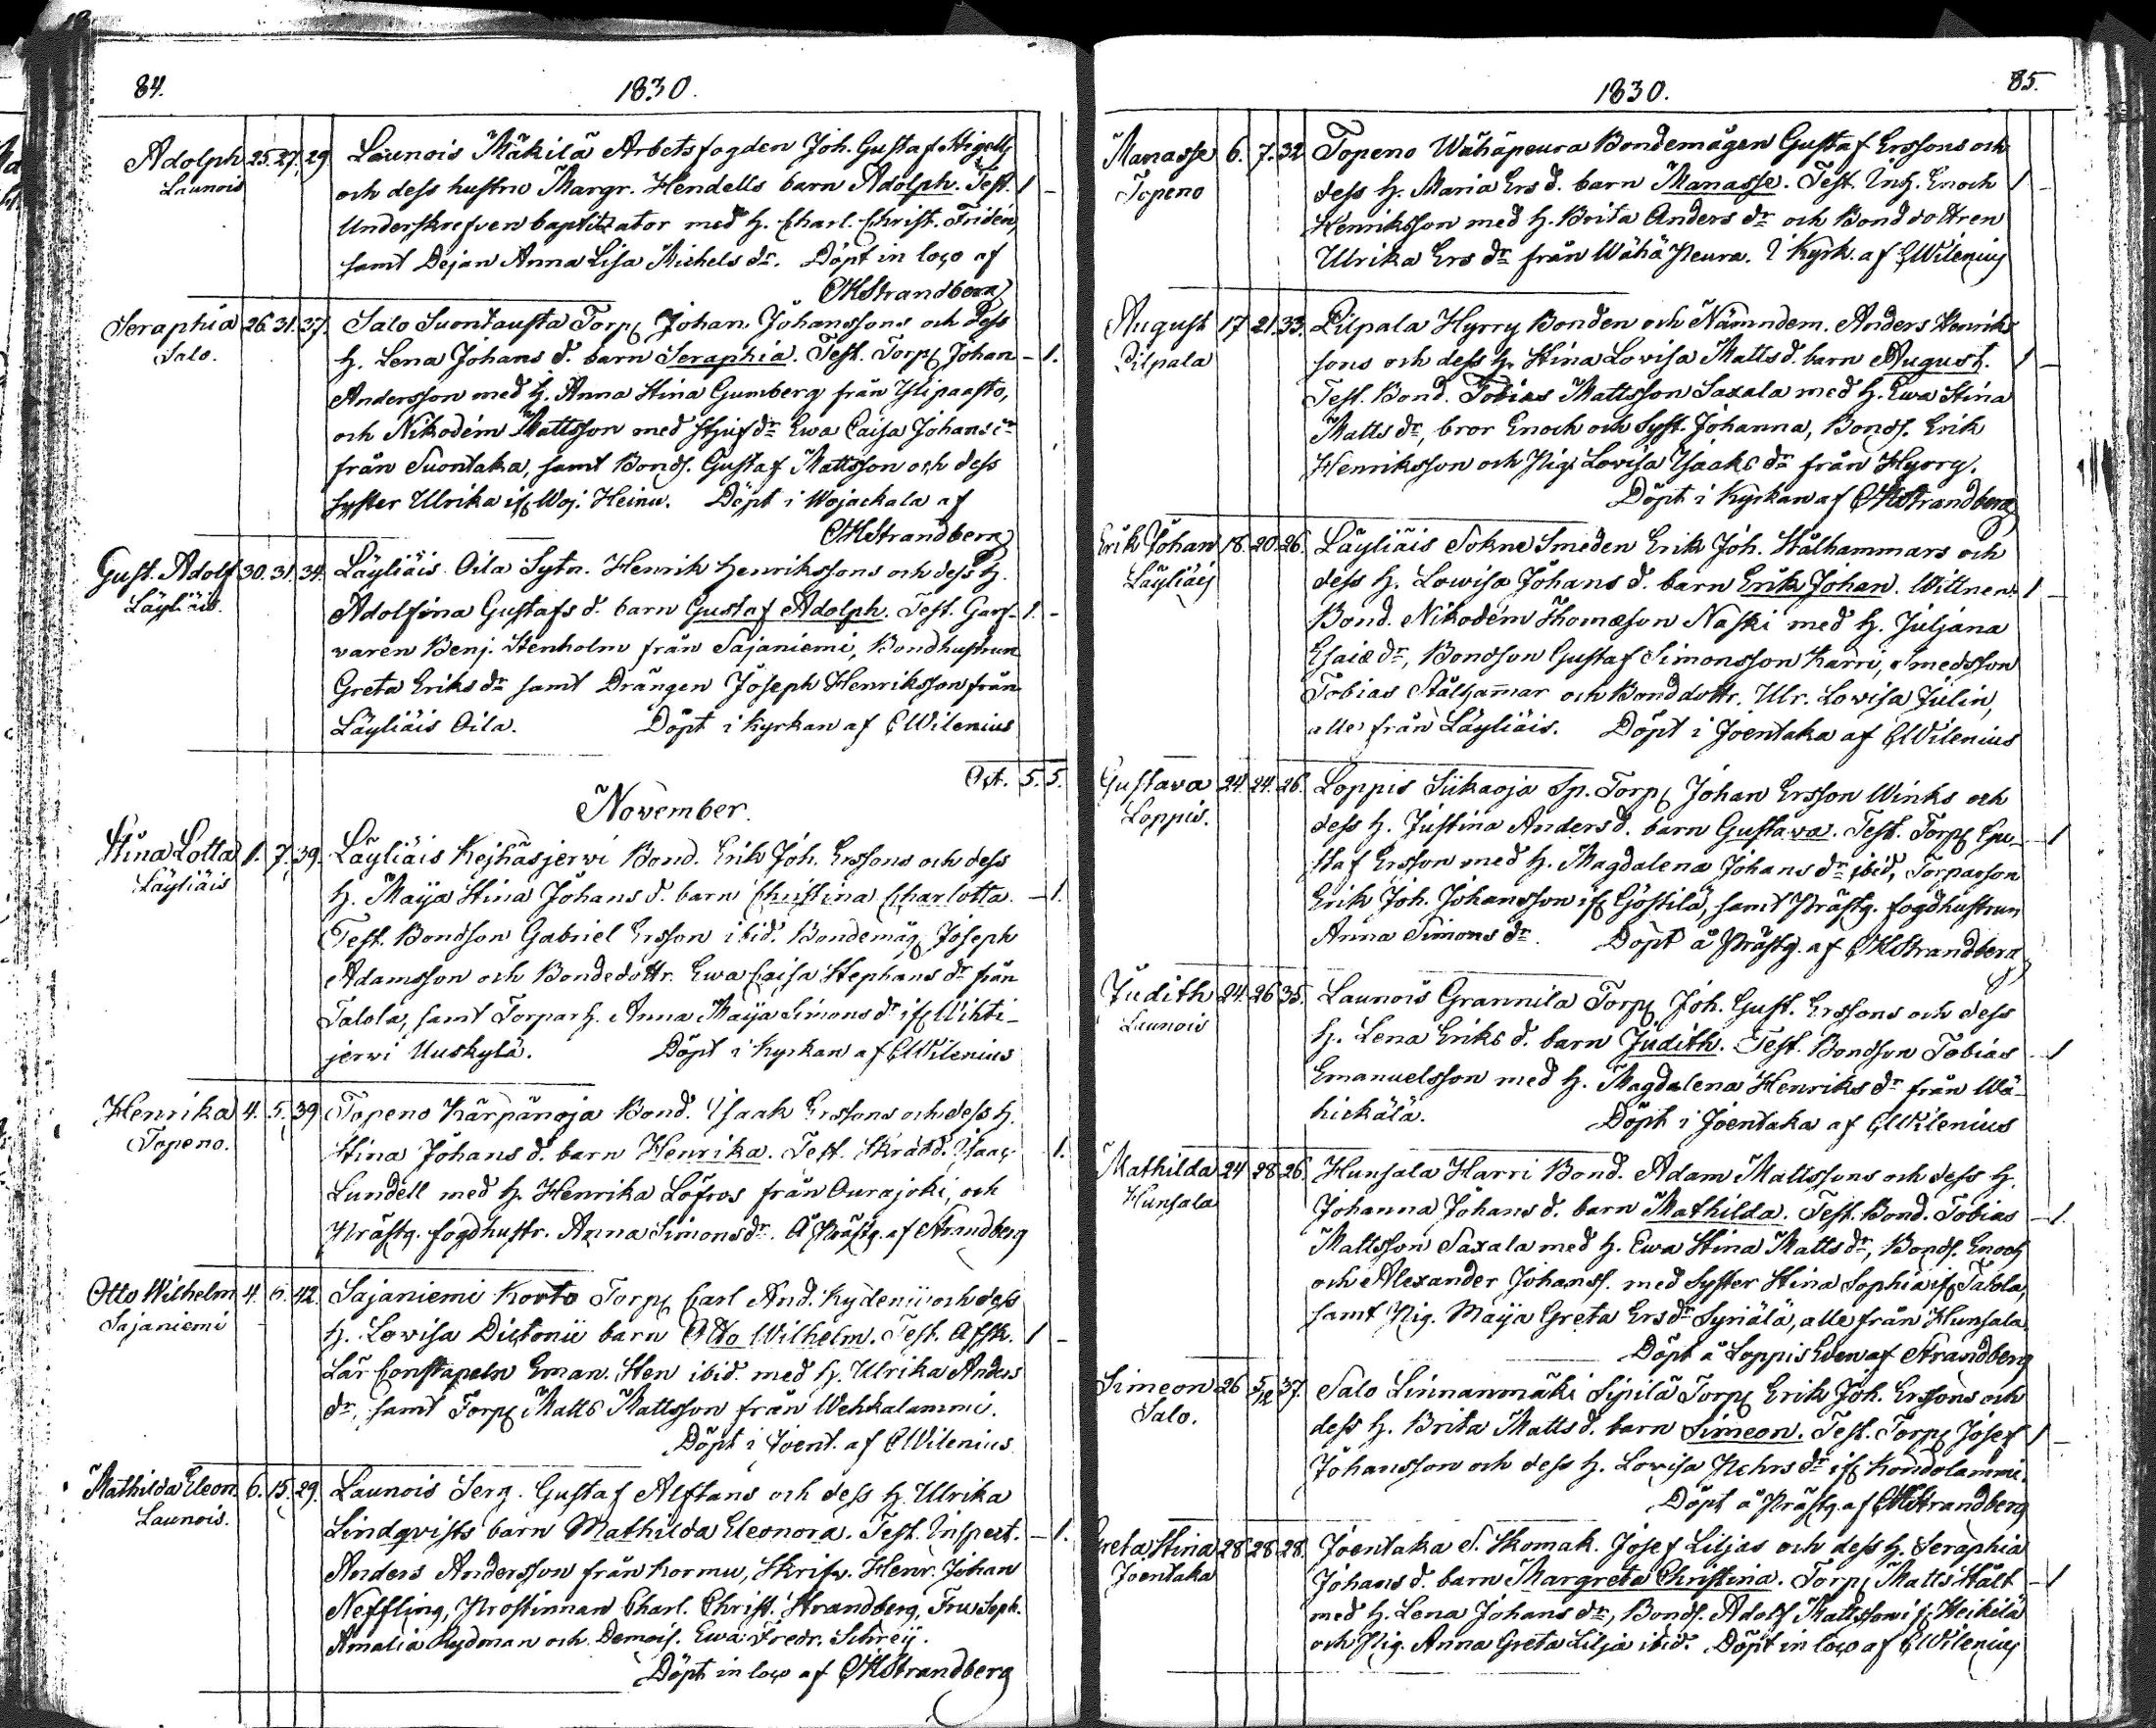 84.
1830.
Adolph 25. 27. 29. Launois Mäkilä Arbetsfogden Joh. Gustaf
Launois och dess hustru Margr. Hendells barn Adolph. Test. 1 -
Underskrefven baptizator med H. Charl. Christ. Fridén,
samt Dejan Anna Lisa Michels dr. Döpt in loco af
OHStrandberg
Seraphia 26. 31. 37. Salo Suontausta Torp. Johan Johanssons och dess
Salo. H. Lena Johans d. barn Seraphia. Test. Torp. Johan - 1.
Andersson med H. Anna Stina Gumberg från Ylipaasto,
och Nikodém Mattsson med Stjufdr Ewa Caisa Johans dr
från Suontaka, samt Bonds. Gustaf Mattsson och dess
syster Ulrika if. Woj. Heinu. Döpt i Wojackala af
OHStrandberg
Gust. Adolf 30. 31. 34. Läyliäis Oila Sytn. Henrik Henrikssons och dess H.
Läyliäis. Adolfina Gustafs d. barn Gustaf Adolph. Test. Garf- 1. -
varen Benj. Stenholm från Sajaniemi, Bondhustrun
Greta Eriks dr samt Drängen Joseph Henriksson från
Läyliäis Oila. Döpt i Kyrkan af CWilenius
Oct. 5. 5.
November.
Stina Lotta 1. 7. 39. Läyliäis Kejhäsjerwi Bond. Erik Joh. Erssons och dess
Läyliäis H. Maija Stina Johans d. barn Christina Charlotta. - 1.
Test. Bondson Gabriel Ersson ibid. Bondemåg Joseph
Adamsson och Bondedottr. Ewa Caisa Stephans dr från
Talola, samt Torparh. Anna Maija Simons dr if. Wihti-
jerwi Uuskylä. Döpt i Kyrkan af CWilenius
Henrika 4. 5. 39. Topeno Kärpänoja Bond. Isaak Erssons och dess H.
Topeno. Stina Johans d. barn Henrika. Test. Skrädd. Isaac 1.
Lundell med H. Henrika Löfros från Ourajoki, och
Prästg. fogdhustr. Anna Simons dr. Å Prästg. af Strandberg
Otto Wilhelm 4. 6. 42. Sajaniemi Korto Torp. Carl And. Kydenii och dess
Sajaniemi H. Lowisa Dictonii barn Otto Wilhelm. Test. Afsk. 1 -
Lär Constapeln Eman. Sten ibid. med H. Ulrika Anders
dr, samt Torp. Matts Mattsson från Wehkalammi.
Döpt i Joent. af CWilenius
Mathilda Eleon. 6. 15. 29. Launois Serg. Gustaf Alftans och dess H. Ulrika
Launois. Lindqvists barn Mathilda Eleonora. Test. Inspect. - 1.
Anders Andersson från Kormu, Skrifv. Henr. Johan
Neffling, Prostinnan Charl. Christ. Strandberg, Fru Soph.
Amalia Rydman och Demois. Ewa Fredr. Schreij.
Döpt in loco af OHStrandberg
1830.
85.
Manasse 6. 7. 32. Topeno Wähäpeura Bondemågen Gustaf Erssons och
Topeno dess H. Maria Ers d. barn Manasse. Test. Inh. Enoch 1 -
Henriksson med H. Brita Anders dr och Bonddottren
Ulrika Ers dr från Wähä Peura. I Kyrk. af CWilenius
August 17 21. 33. Pilpala Hyrry Bonden och Nämndem. Anders Henriks
Pilpala sons och dess H. Stina Lovisa Matts d. barn August. 1 -
Test. Bond. Tobias Mattsson Saxala med H. Ewa Stina
Matts dr, bror Enoch och Syst. Johanna, Bonds. Erik
Henriksson och Pig. Lovisa Isaaks dr från Hyrry.
Döpt i Kyrkan af OHStrandberg
Erik Johan 18. 20. 26. Läyliäis Sokne Smeden Erik Joh. Stålhammars och
Läyliäis dess H. Lowisa Johans d. barn Erik Johan. Wittnen. 1 -
Bond. Nikodém Thomæson Naski med H. Juljana
Esaiæ dr, Bondson Gustaf Simonsson Karri, Smedsson
Tobias Stålhammar och Bonddottr. Ulr. Lovisa Julin,
alle från Läyliäis. Döpt i Joentaka af CWilenius
Gustava 24. 24. 26. Loppis Siikaoja Sp. Torp. Johan Ersson Winks och
Loppis. dess H. Justina Anders d. barn Gustava. Test. Torp. Gu- - 1
staf Ersson med H. Magdalena Johans dr ibid, Torparson
Erik Joh. Johansson if. Göstilä, samt Prästg. fogdhustrun
Anna Simons dr. Döpt å Prästg. af OHStrandberg
Judith 24. 26 35. Launois Grannila Torp. Joh. Gust. Erssons och dess
Launois H. Lena Eriks d. barn Judith. Test. Bondson Tobias - 1
Emanuelsson med H. Magdalena Henriks dr från Wä-
hickälä. Döpt i Joentaka af CWilenius
Mathilda 24 28 26. Hunsala Harri Bond. Adam Mattssons och dess H.
Hunsala Johanna Johans d. barn Mathilda. Test. Bond. Tobias - 1.
Mattsson Saxala med H. Ewa Stina Matts dr, Bonds. Enoch
och Alexander Johanss. med Syster Stina Sophia if. Talola,
samt Pig. Maija Greta Ers dr Syriälä, alle från Hunsala.
Döpt å Loppis Even af Strandberg
Simeon 26 5/12 37. Salo Linnanmäki Sipilä Torp. Erik Joh. Erssons och
Salo. dess H. Brita Matts d. barn Simeon. Test. Torp. Josef 1 -
Johansson och dess H. Lovisa Pehrs dr if. Kondolammi.
Döpt å Prästg. af OHStrandberg
Greta Stina 28 28 28. Joentaka S. Skomak. Josef Liljas och dess H. Seraphia
Joentaka Johans d. barn Margreta Christina. Torp. Matts Stålt - 1
med H. Lena Johans dr, Bonds. Adolf Mattsson if. Heikilä
och Pig. Anna Greta Lilja ibid. Döpt in loco af CWilenius